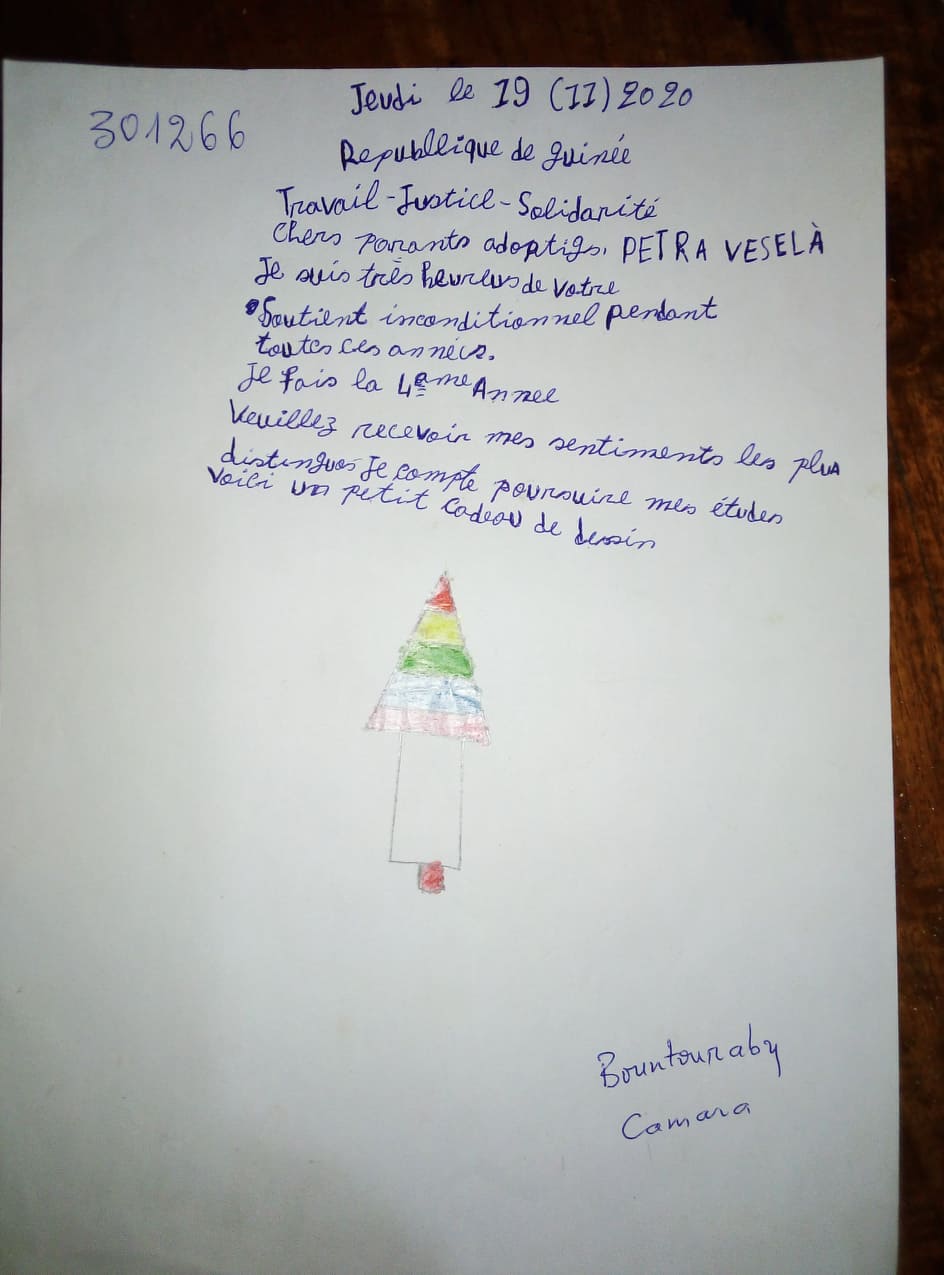 Jeudi le 19 (11) 2020
301266
Republlique de guinée
Travail-Justice-Solidarité
Chers parants adoptifs, PETRA VESELÀ
Je suis très heureus de votre
Soutient inconditionnel pendant
toutes ces années.
Je fais la 4ème Annee
Veuillez recevoir mes sentiments les plus
distingués Je compte poursuire mes études
Voici un petit cadeau de dessin
Bountouraby
Camara